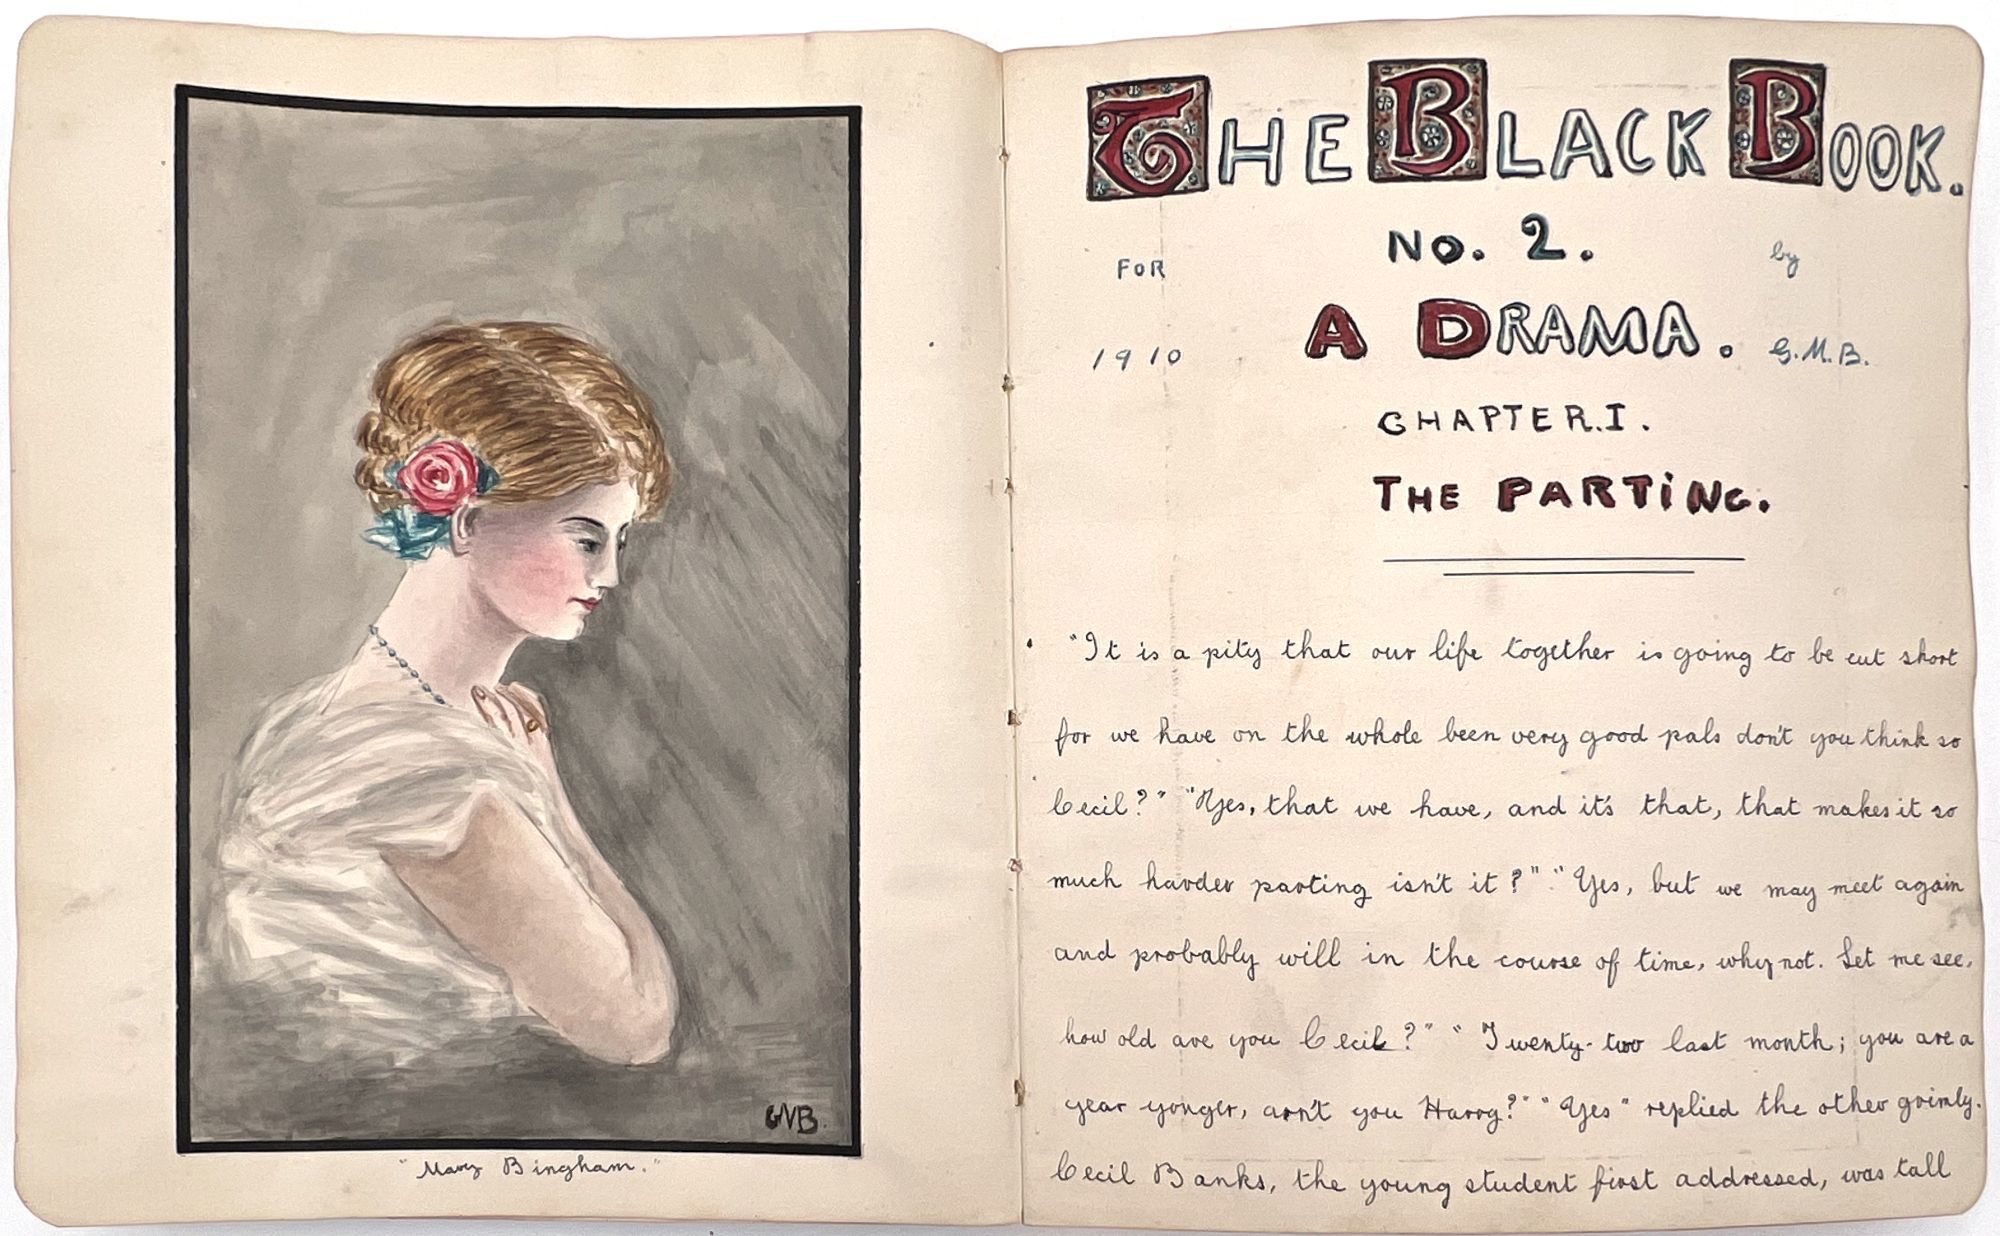 GMB.
"Mary Bingham."
THE BLACK BOOK.
No. 2.
FOR
by
A DRAMA.
1910
G.M.B.
CHAPTER.I.
THE PARTING.
"It is a pity that our life together is going to be cut short
for we have on the whole been very good pals don't you think so
Cecil?" "Yes, that we have, and it's that, that makes it so
much harder parting isn't it?" "Yes, but we may meet again
and probably will in the course of time, why not. Let me see,
how old are you Cecil?" "Twenty-two last month; you are a
year yonger, arn't you Harry?" "Yes" replied the other grimly.
Cecil Banks, the young student first addressed, was tall